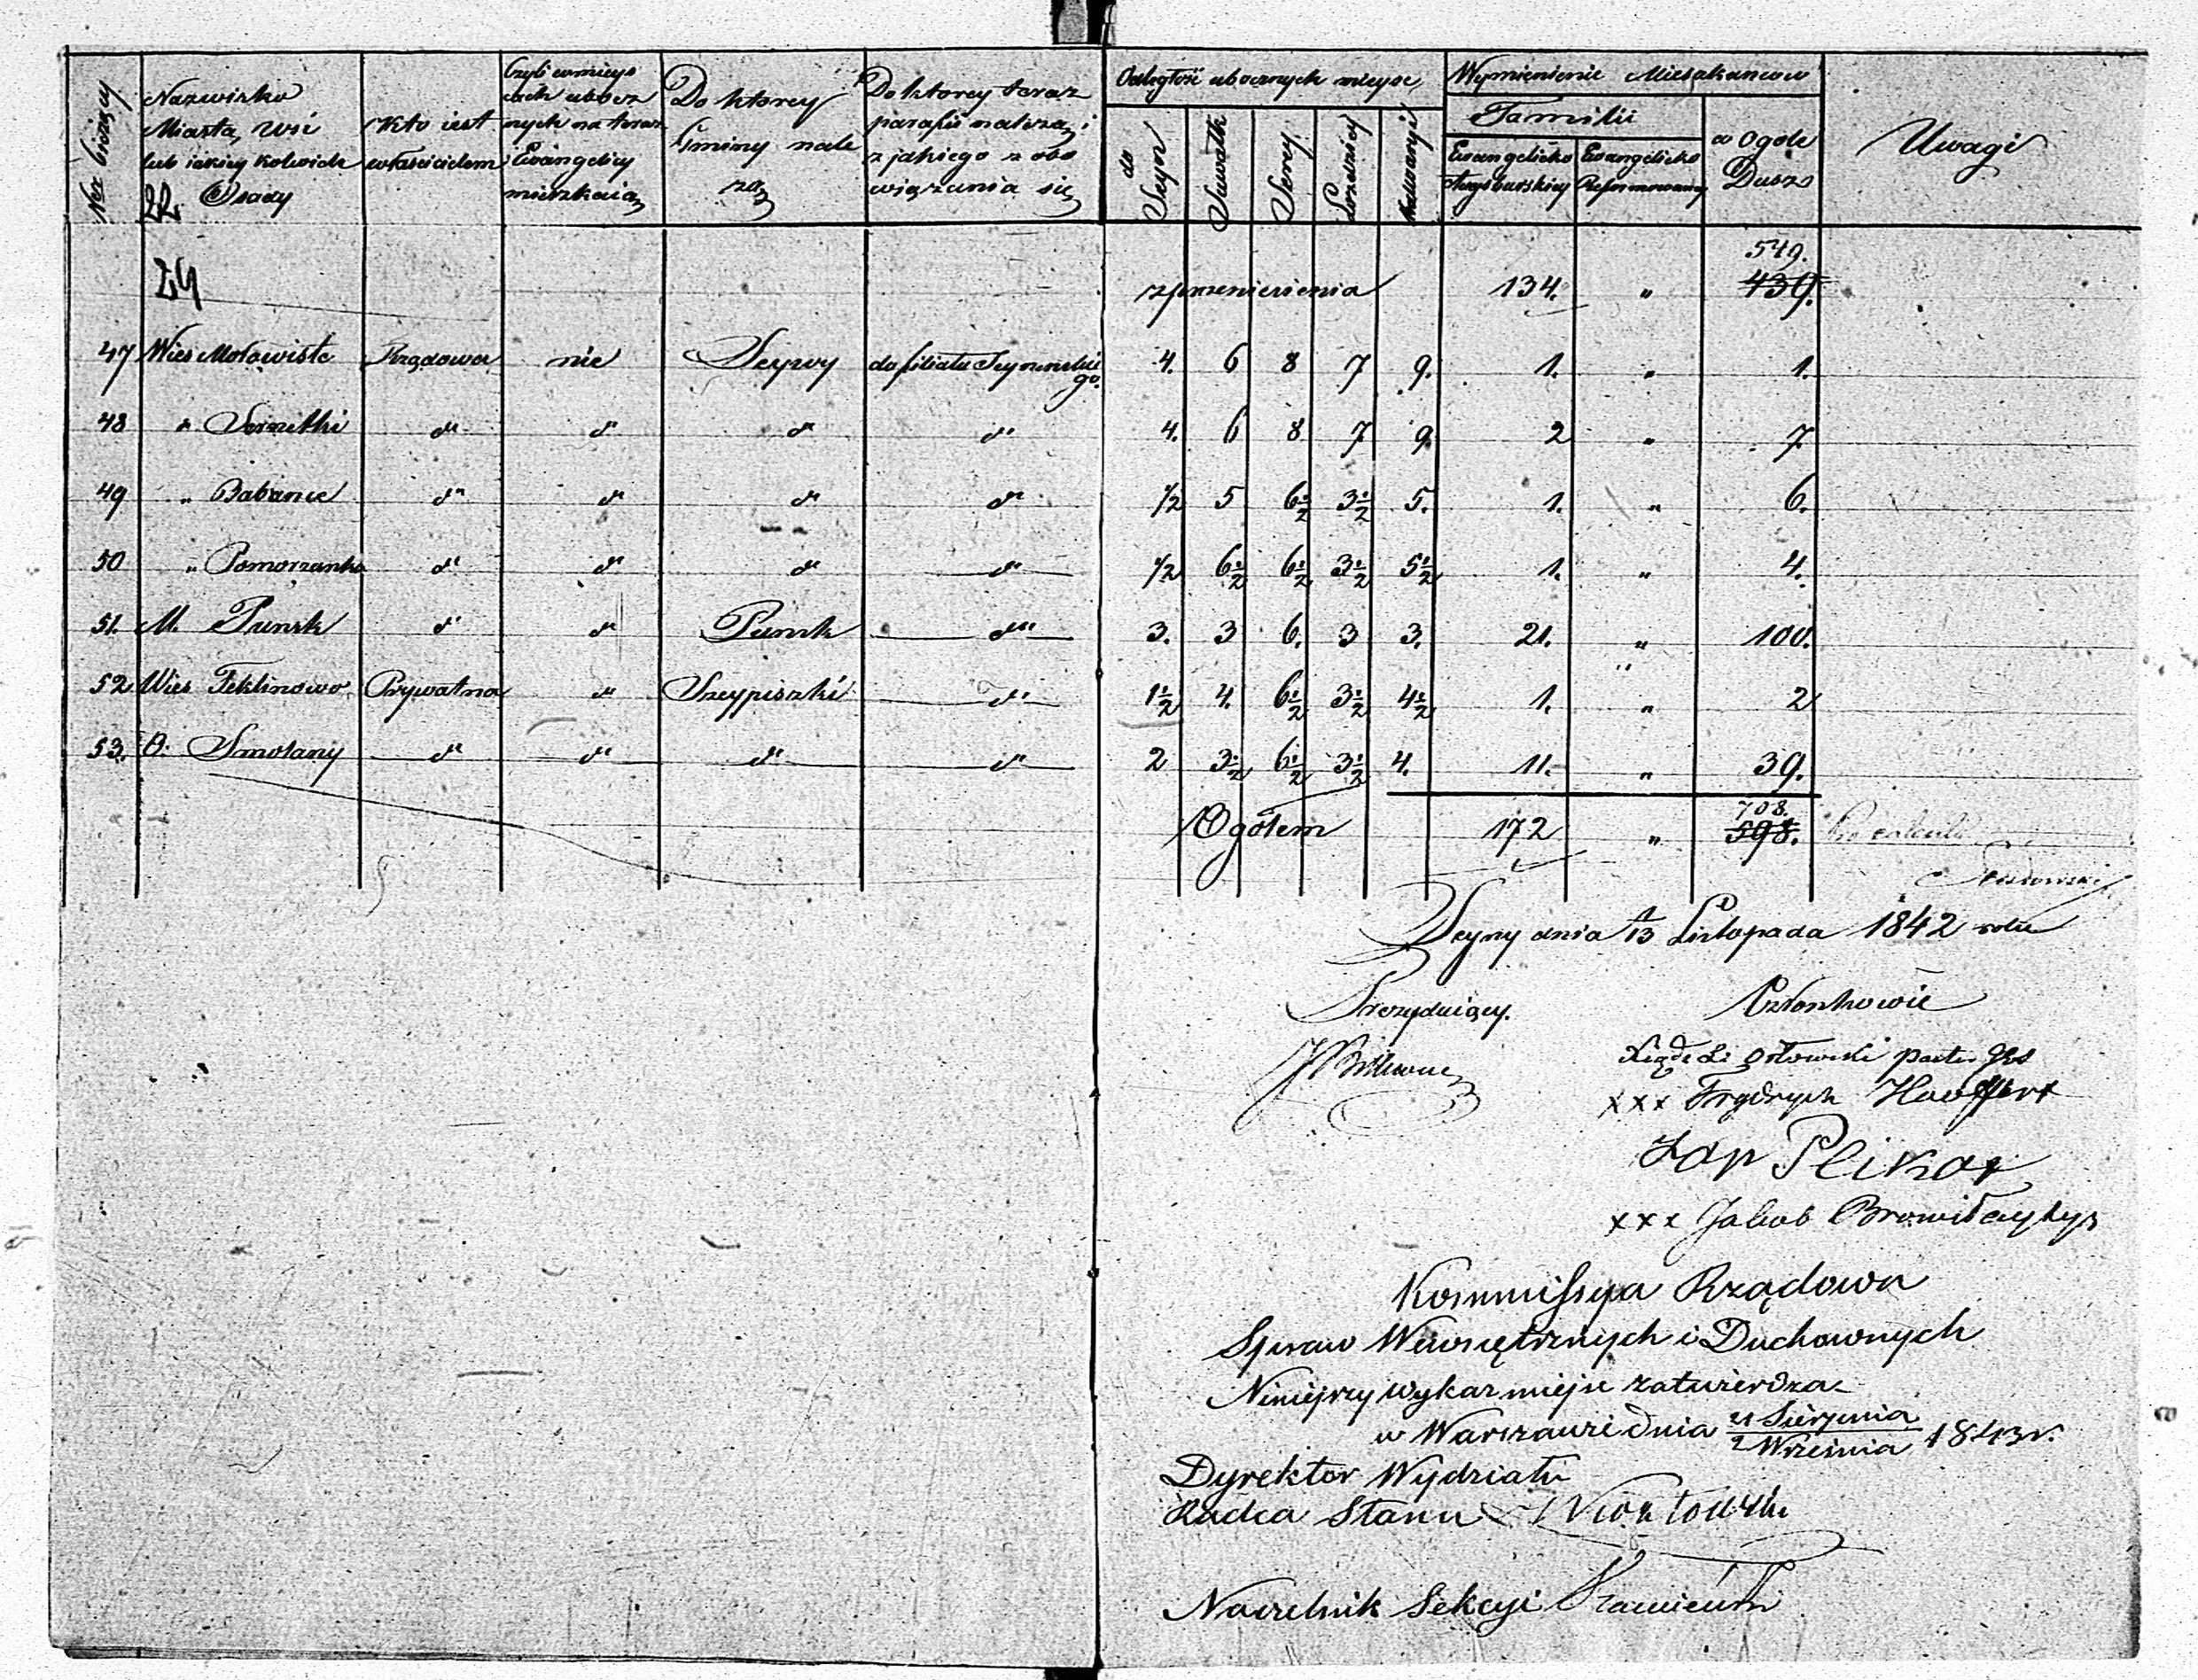 Ner bieżący
Nazwisko
Miasta, wsi
lub iakiey kolwiek
Osady
22
Kto iest
właścicielem
Czyli w mieys
cach ubocz
nych na teraz
Ewangelicy
mieszkaią
Do ktorey
Gminy nale
zą
Do ktorey teraz
parafii należą i
z jakiego z obo
wiązania się
Odległość ubocznych mieysc
do Seyn
Suwałk
Serey
Łozdziey
Kalwaryi
Wymienienie Mieszkancow
Familii
Ewangelicko
Augsburskiey
Ewangelicko
Reformowaney
w Ogole
Dusz
Uwagi
24 z przeniesienia 134. " 549. 439.
47 Wies Mołowiste Rządowa nie Seywy do filiału Seynenskie
go. 4. 6 8 7 9. 1. " 1.
48 " Sernetki d° d° d° d° 4. 6 8. 7 9. 2 " 7
49 " Babance d° d° d° d° 1/2 5 6 1/2 3 1/2 5. 1. " 6.
50 " Pomorzanka d° d° d° d° 1/2 6 1/2 6 1/2 3 1/2 5 1/2 1. " 4.
51. M. Punsk d° d° Punsk d° 3. 3 6. 3 3. 21. " 100.
52 Wies Teklinowo Prywatna " Szeypiszki d° 1 1/2 4. 6 1/2 3 1/2 4 1/2 1. " 2
53. O. Smolany d° d° d° d° 2 3 1/2 6 1/2 3 1/2 4. 11. " 39.
Ogółem 172 " 708. 598.
Seyny dnia 1/13 Listopada 1842 roku
Prezyduiący. Członkowie
xxx Frydrych
Jan Plikat
xxx Jakob
Kommissya Rządowa
Spraw Wewnętrznych i Duchownych
Niniejszy wykaz miejsc zatwierdza
w Warszawie dnia 21 Sierpnia / 2 Września 1843 r.
Dyrektor Wydziału
Radca Stanu
Naczelnik Sekcyi